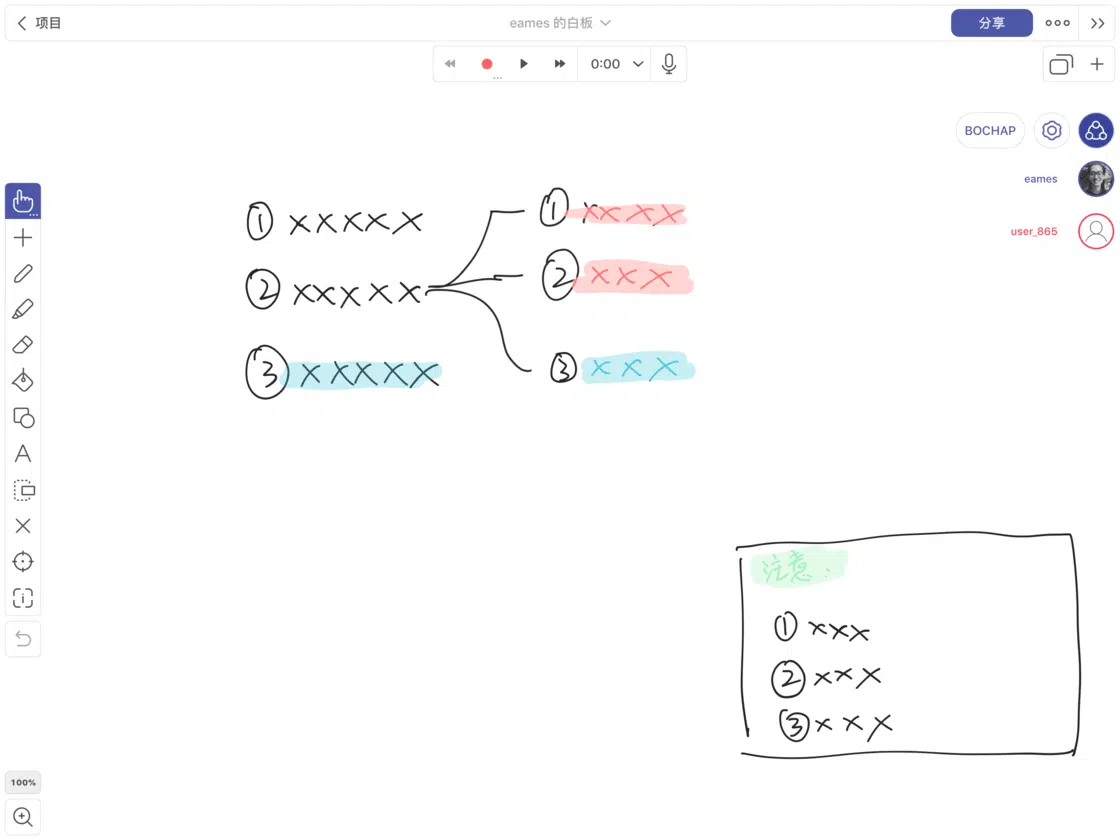 项目
eames 的白板
分享
0:00
BOCHAP
eames
user_865
① xxxxx
② xxxxx
③ xxxxx
① xxxx
② xxx
③ xxx
注意：
① xxx
② xxx
③ xxx
100%